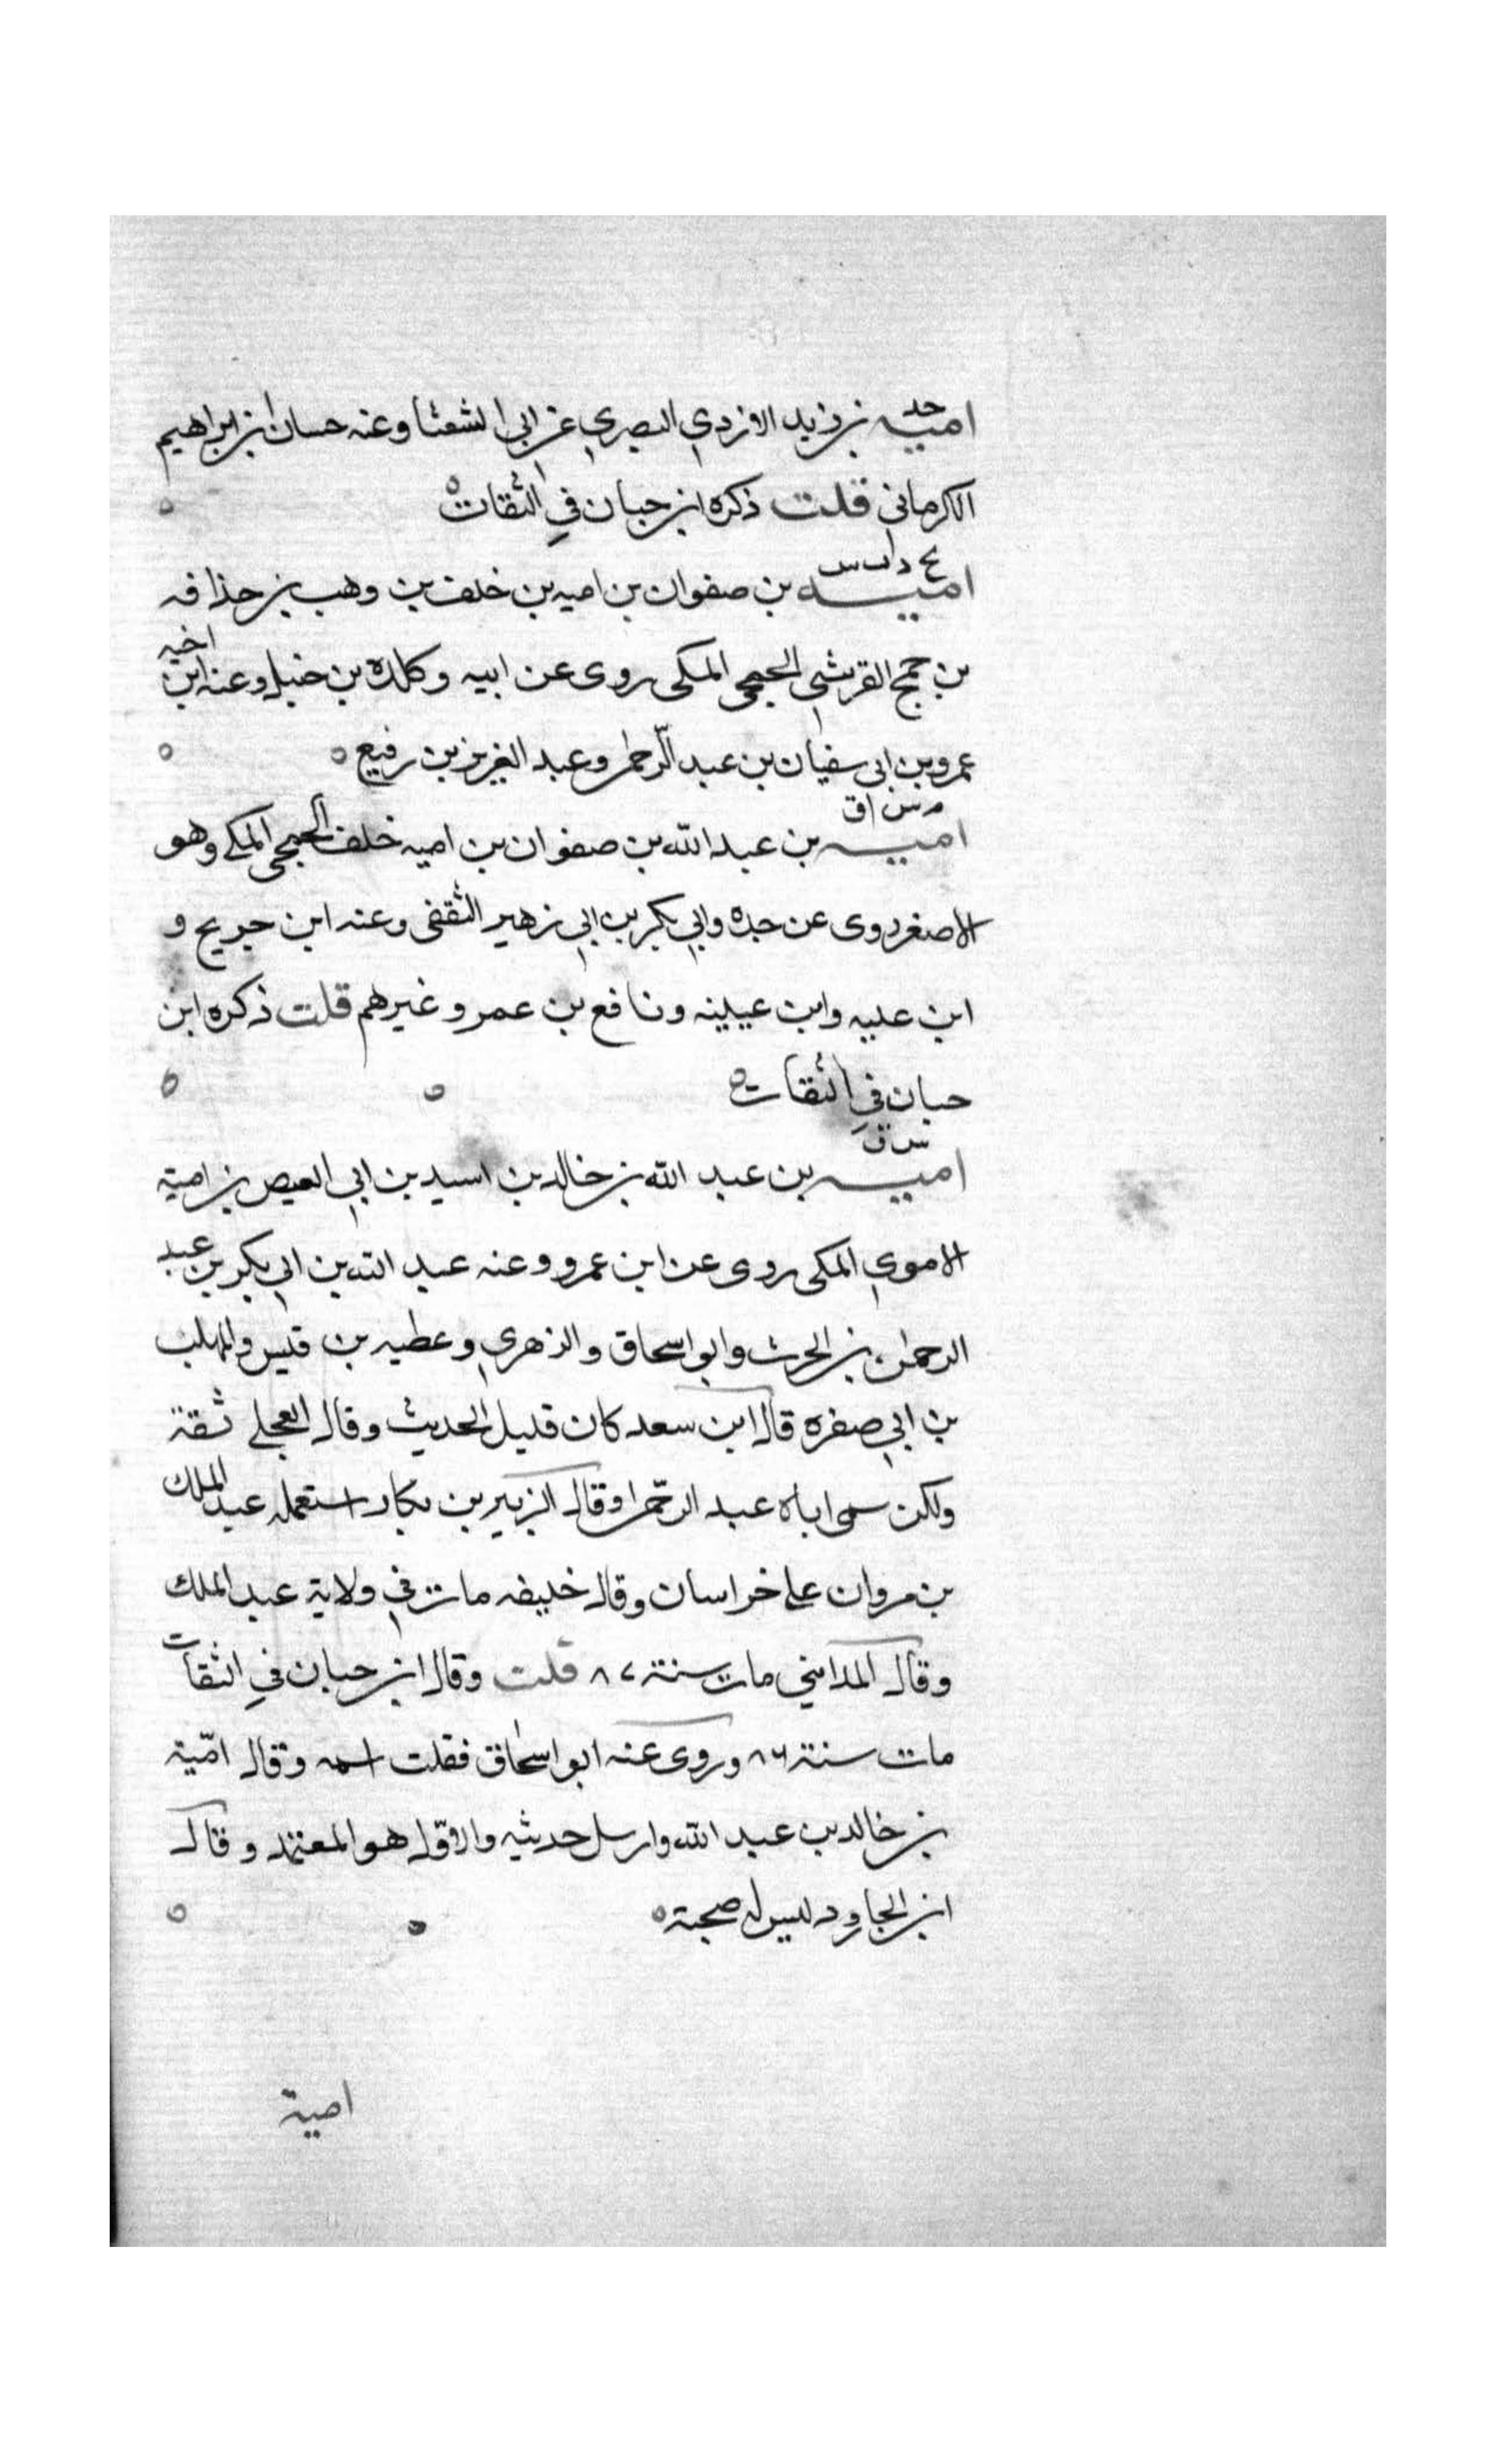 حد
امية بن زيد الازدي البصري عن ابي الشعثا وعنه حسان بن ابراهيم
الكرماني قلت ذكره ابن حبان في الثقات
امية بن صفوان بن اميه بن خلف بن وهب بن حذافه
بن جمح القرشي الجمحي المكي روى عن ابيه وكلدة بن حنبل وعنه ابن اخيه
عمرو بن ابي سفيان بن عبد الرحمن وعبد العزيز بن رفيع
م س ق
اميه بن عبد الله بن صفوان بن اميه خلف الجمحي المكي وهو
الاصغر روى عن جده وابي بكر بن ابي زهير الثقفي وعنه ابن جريج و
ابن عليه وابن عيينه ونافع بن عمر وغيرهم قلت ذكره ابن
حبان في الثقات
س ق
اميه بن عبد الله بن خالد بن اسيد بن ابي العيص بن امية
الاموي المكي روى عن ابن عمرو وعنه عبد الله بن ابي بكر بن عبد
الرحمن بن الحرث وابو اسحاق والزهري وعطيه بن قيس والمهلب
بن ابي صفره قال ابن سعد كان قليل الحديث وقال العجلي ثقة
ولكن سمى اباه عبد الرحمن وقال الزبير بن بكار استعمله عبد الملك
بن مروان على خراسان وقال خليفه مات في ولاية عبد الملك
وقال المدايني مات سنة ٨٧ قلت وقال ابن حبان في الثقات
مات سنة ٨٦ وروى عنه ابو اسحاق فقلت اسمه وقال امّية
بن خالد بن عبد الله وارسل حديثه والاوّل هو المعتمد وقال
ابن الجارود ليس له صحبة
امية